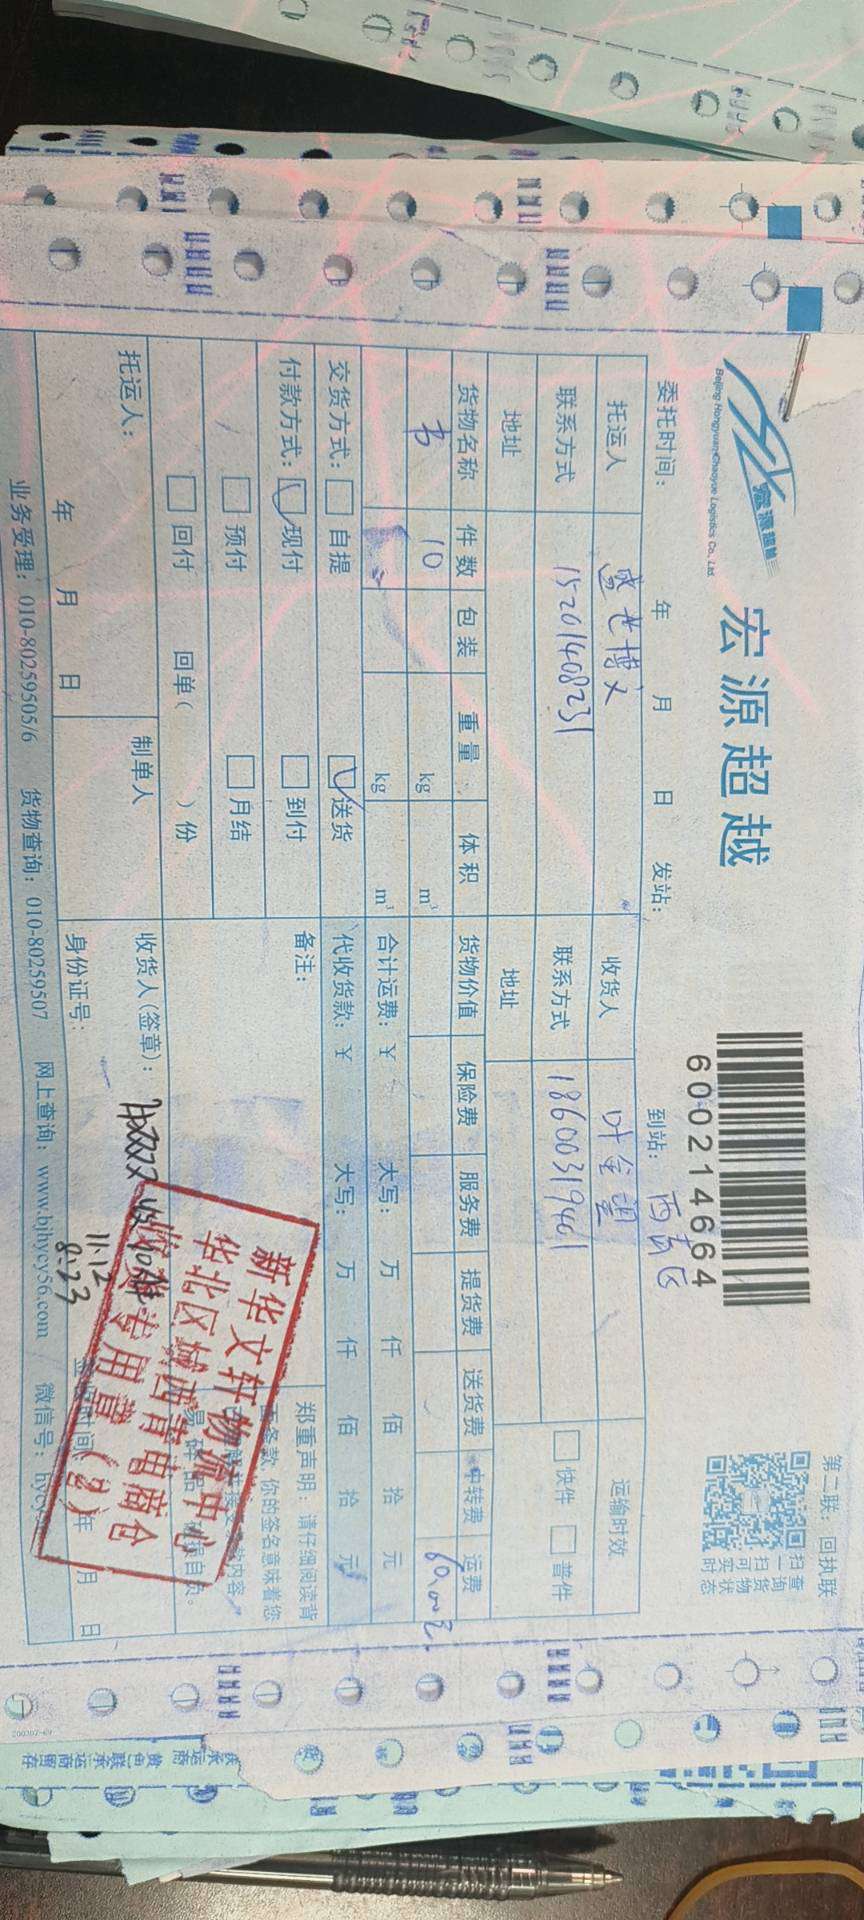 宏源超越
Beijing Hongyuan Chaoyue Logistics Co., Ltd
宏源超越
600214664
第二联：回执联
扫一扫可查询货物实时状态
委托时间： 年 月 日 发站： 到站：西青区
托运人 盛世博文 收货人 叶金望 运输时效
联系方式 15201408231 联系方式 18600319401 快件 普件
地址 地址
货物名称 件数 包装 重量 体积 货物价值 保险费 服务费 提货费 送货费 中转费 运费
书 10 kg m³ 60.00元
kg m³ 合计运费：¥ 大写： 万 仟 佰 拾 元
交货方式： 自提 送货 代收货款：¥ 大写： 万 仟 佰 拾 元
付款方式： 现付 到付 备注：
预付 月结
回付 回单（ ）份
郑重声明：请仔细阅读背
面条款 你的签名意味着您
托运人： 制单人 收货人(签章)：
年 月 日 身份证号： 年 月 日
11.12
8:23
新华文轩物流中心
华北区域西青电商仓
收货专用章（2）
业务受理：010-80259505/6 货物查询：010-80259507 网上查询：www.bjhycy56.com 微信号：hycy5